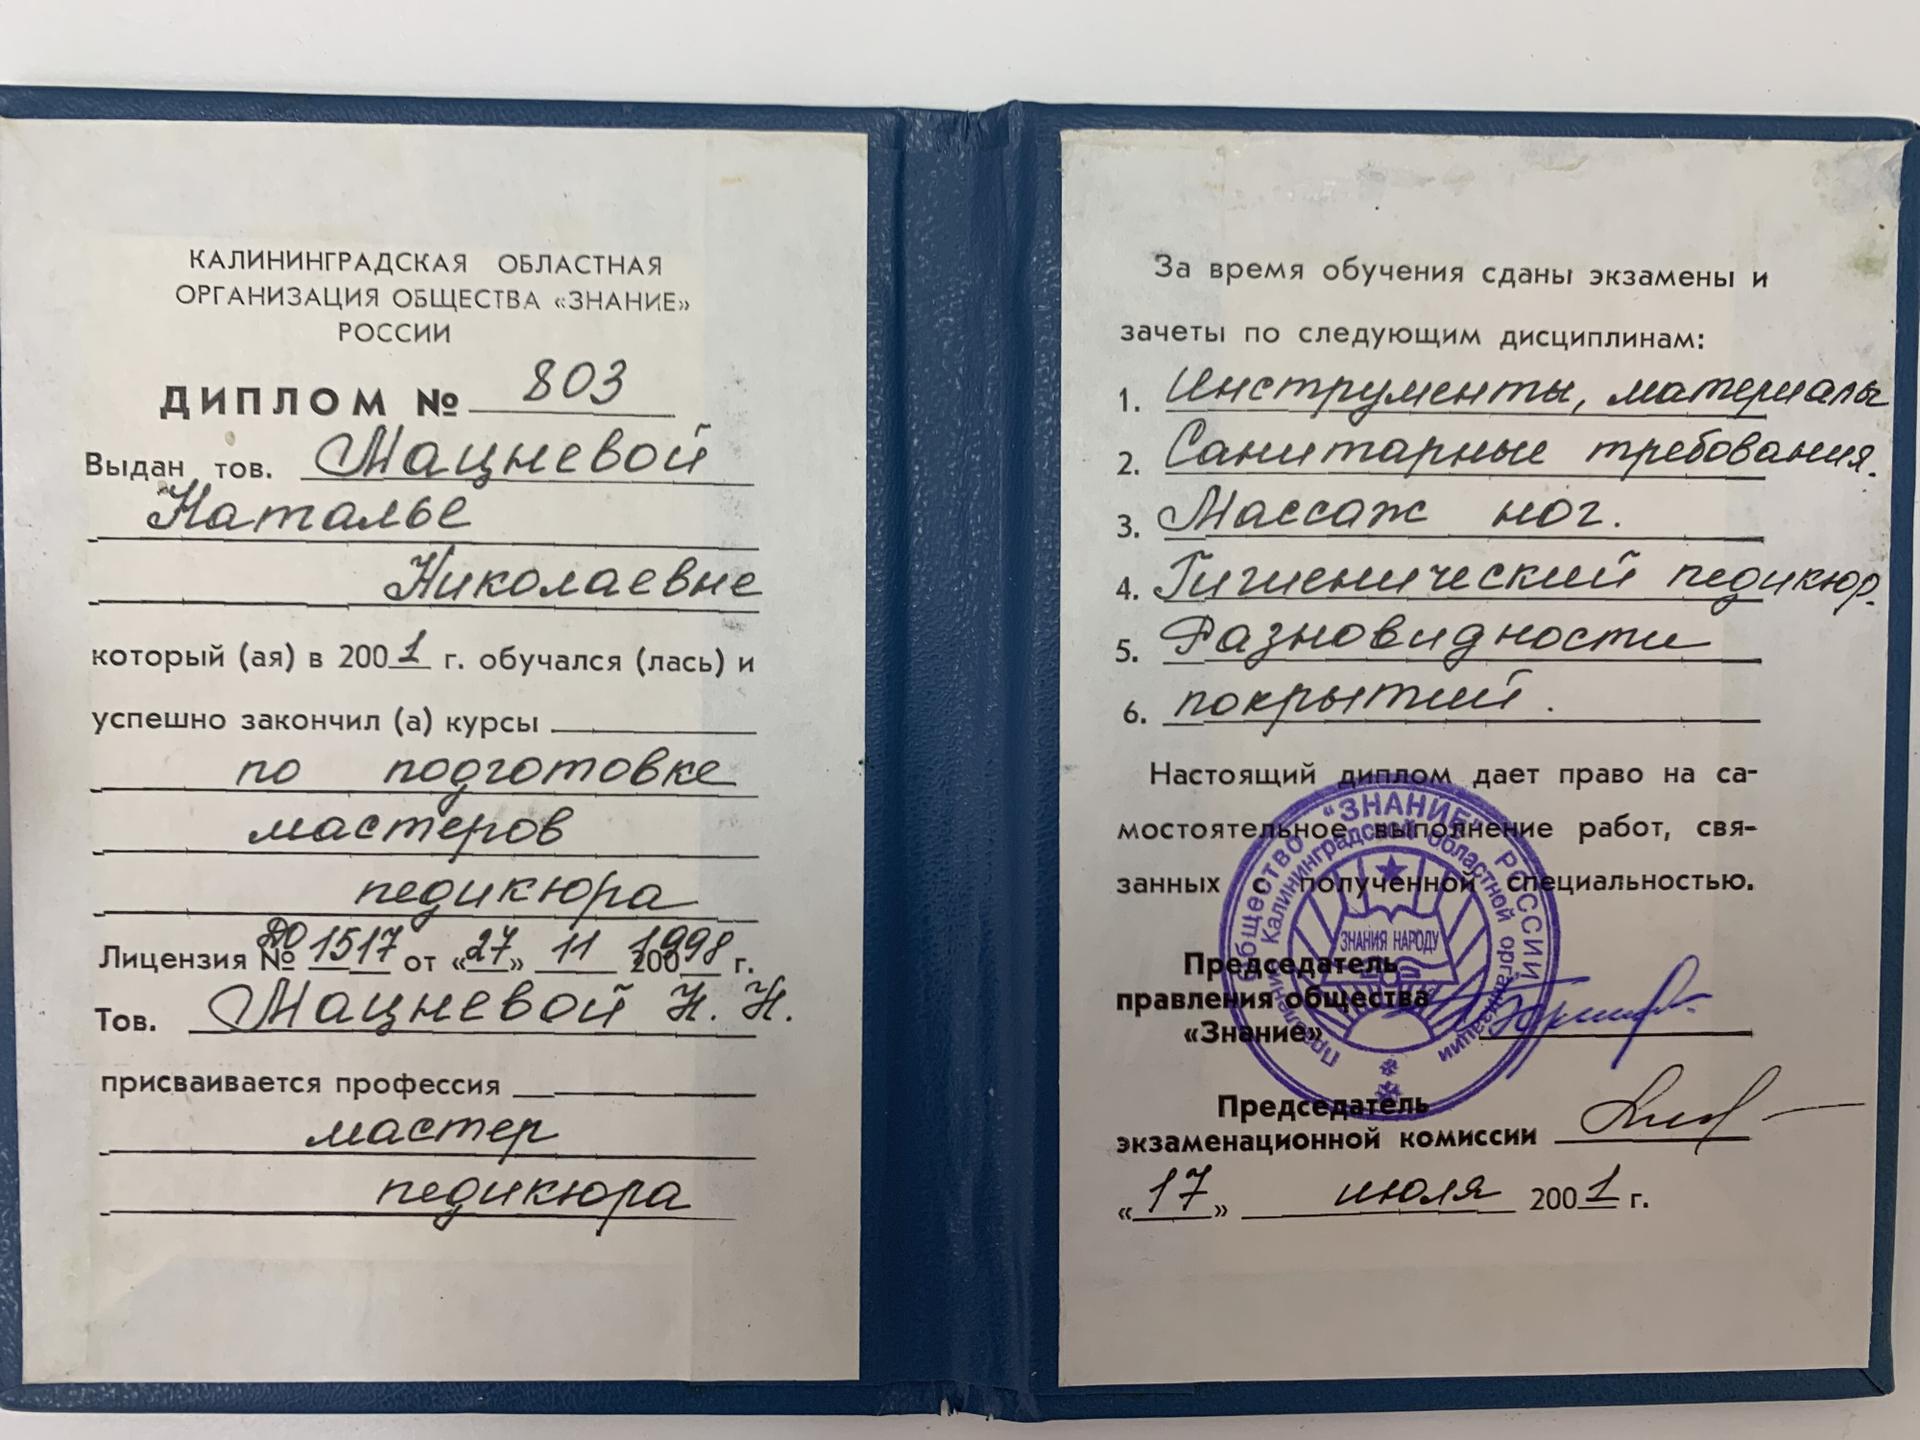 КАЛИНИНГРАДСКАЯ ОБЛАСТНАЯ
ОРГАНИЗАЦИЯ ОБЩЕСТВА «ЗНАНИЕ»
РОССИИ
ДИПЛОМ № 803
Выдан тов. Мацневой
Наталье
Николаевне
который (ая) в 2001 г. обучался (лась) и
успешно закончил (а) курсы
по подготовке
мастеров
педикюра
Лицензия № ДО 1517 от «27» 11 1998 г.
Тов. Мацневой Н. Н.
присваивается профессия
мастер
педикюра
За время обучения сданы экзамены и
зачеты по следующим дисциплинам:
1. Инструменты, материалы
2. Санитарные требования.
3. Массаж ног.
4. Гигиенический педикюр.
5. Разновидности
6. покрытий.
Настоящий диплом дает право на са-
мостоятельное выполнение работ, свя-
занных с полученной специальностью.
Председатель
правления общества
«Знание»
Председатель
экзаменационной комиссии
«17» июля 2001 г.
Общество "ЗНАНИЕ" РОССИИ
Правление Калининградской областной организации
ЗНАНИЯ НАРОДУ